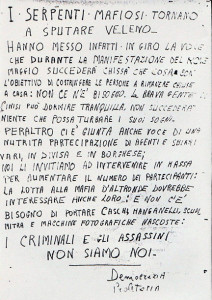 I SERPENTI MAFIOSI TORNANO
A SPUTARE VELENO...
HANNO MESSO INFATTI IN GIRO LA VOCE
CHE DURANTE LA MANIFESTAZIONE DEL NOVE
MAGGIO SUCCEDERÀ CHISSÀ CHE COSA CON
L'OBIETTIVO DI COSTRINGERE LE PERSONE A RIMANERE CHIUSE
A CASA: NON CE N'E' BISOGNO. LA BRAVA GENTE DI
CINISI PUÒ DORMIRE TRANQUILLA, NON SUCCEDERÀ
NIENTE CHE POSSA TURBARE I SUOI SOGNI.
PERALTRO CI È GIUNTA ANCHE VOCE DI UNA
NUTRITA PARTECIPAZIONE DI AGENTI E SBIRRI
VARI, IN DIVISA E IN BORGHESE;
NOI LI INVITIAMO AD INTERVENIRE IN MASSA
PER AUMENTARE IL NUMERO DEI PARTECIPANTI:
LA LOTTA ALLA MAFIA D'ALTRONDE DOVREBBE
INTERESSARE ANCHE LORO. E NON C'È
BISOGNO DI PORTARE CASCHI, MANGANELLI, SCUDI,
MITRA E MACCHINE FOTOGRAFICHE NASCOSTE:
I CRIMINALI E GLI ASSASSINI
NON SIAMO NOI.
Democrazia
Proletaria